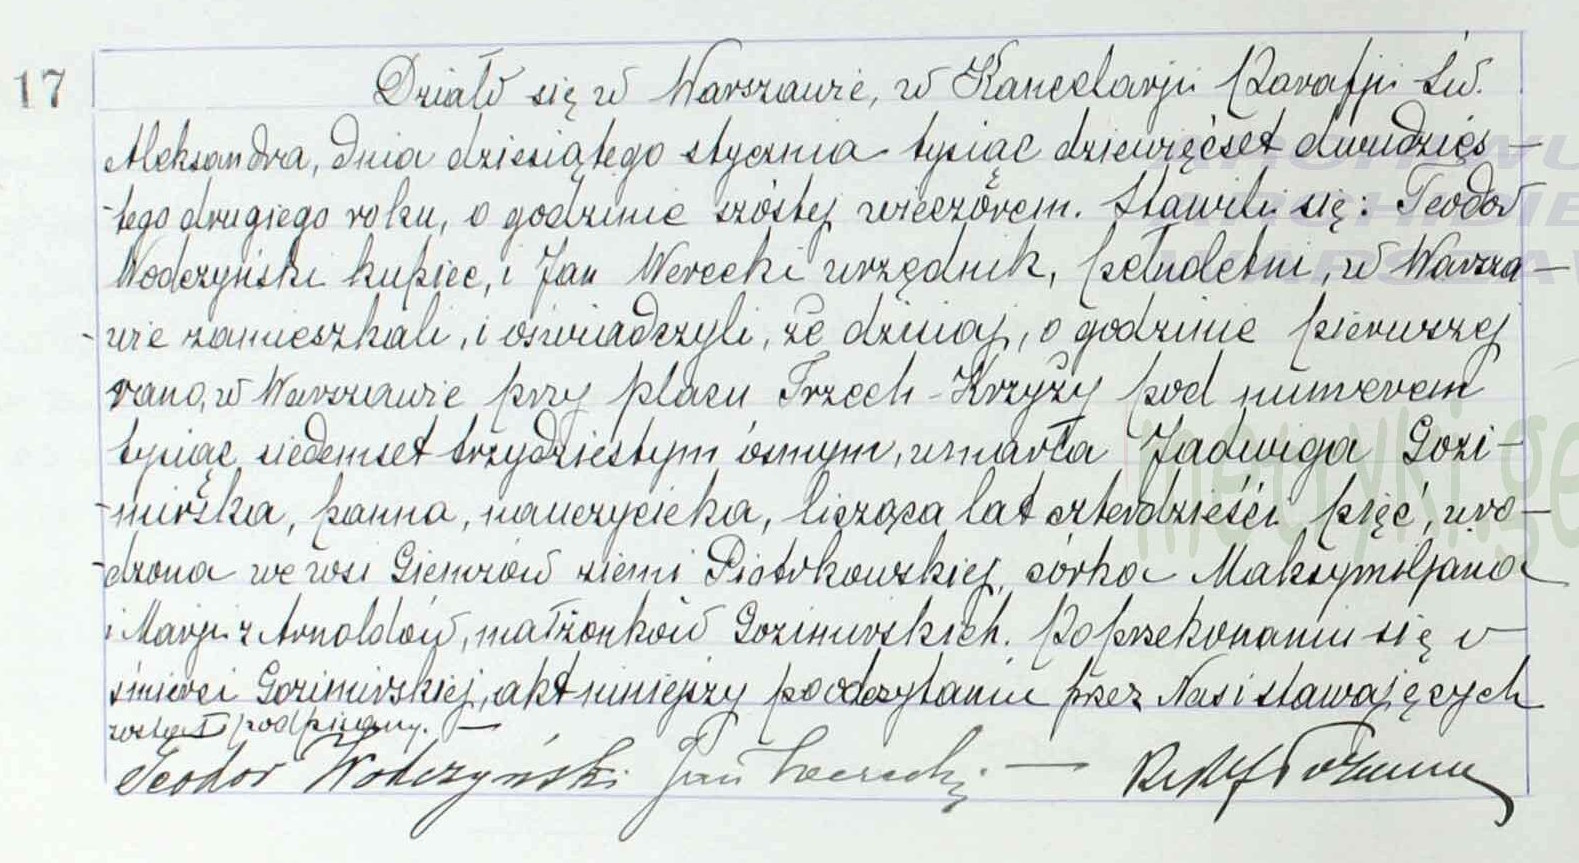 17
Działo się w Warszawie, w Kancelarji Parafji Św.
Aleksandra, dnia dziesiątego stycznia tysiąc dziewięćset dwudzies-
-tego drugiego roku, o godzinie szóstej wieczorem. Stawili się: Teodor
Wodczyński kupiec, i Jan Werecki urzędnik, pełnoletni, w Warsza-
-wie zamieszkali, i oświadczyli, że dzisiaj, o godzinie pierwszej
rano, w Warszawie przy placu Trzech-Krzyży pod numerem
tysiąc siedemset trzydziestym ósmym, umarła Jadwiga Gozi-
-mirska, panna, nauczycielka, licząca lat czterdzieści pięć, uro-
-dzona we wsi ziemi Piotrkowskiej, córka Maksymiljana
i Marji z Arnoldów, małżonków Gozimirskich. Po przekonaniu się o
śmierci Gozimirskiej, akt niniejszy po odczytaniu przez Nas i stawających
został podpisany. —
Teodor Wodczyński Jan Werecki —